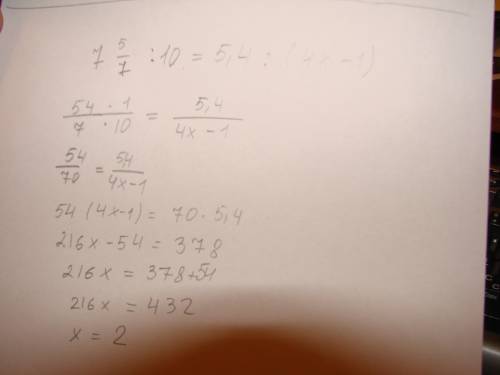 7 5/7 : 10 = 5,4 : (4x - 1)
54 · 1 / 7 · 10 = 5,4 / 4x - 1
54/70 = 5,4/4x-1
54 (4x-1) = 70 · 5,4
216x - 54 = 378
216x = 378 + 54
216x = 432
x = 2